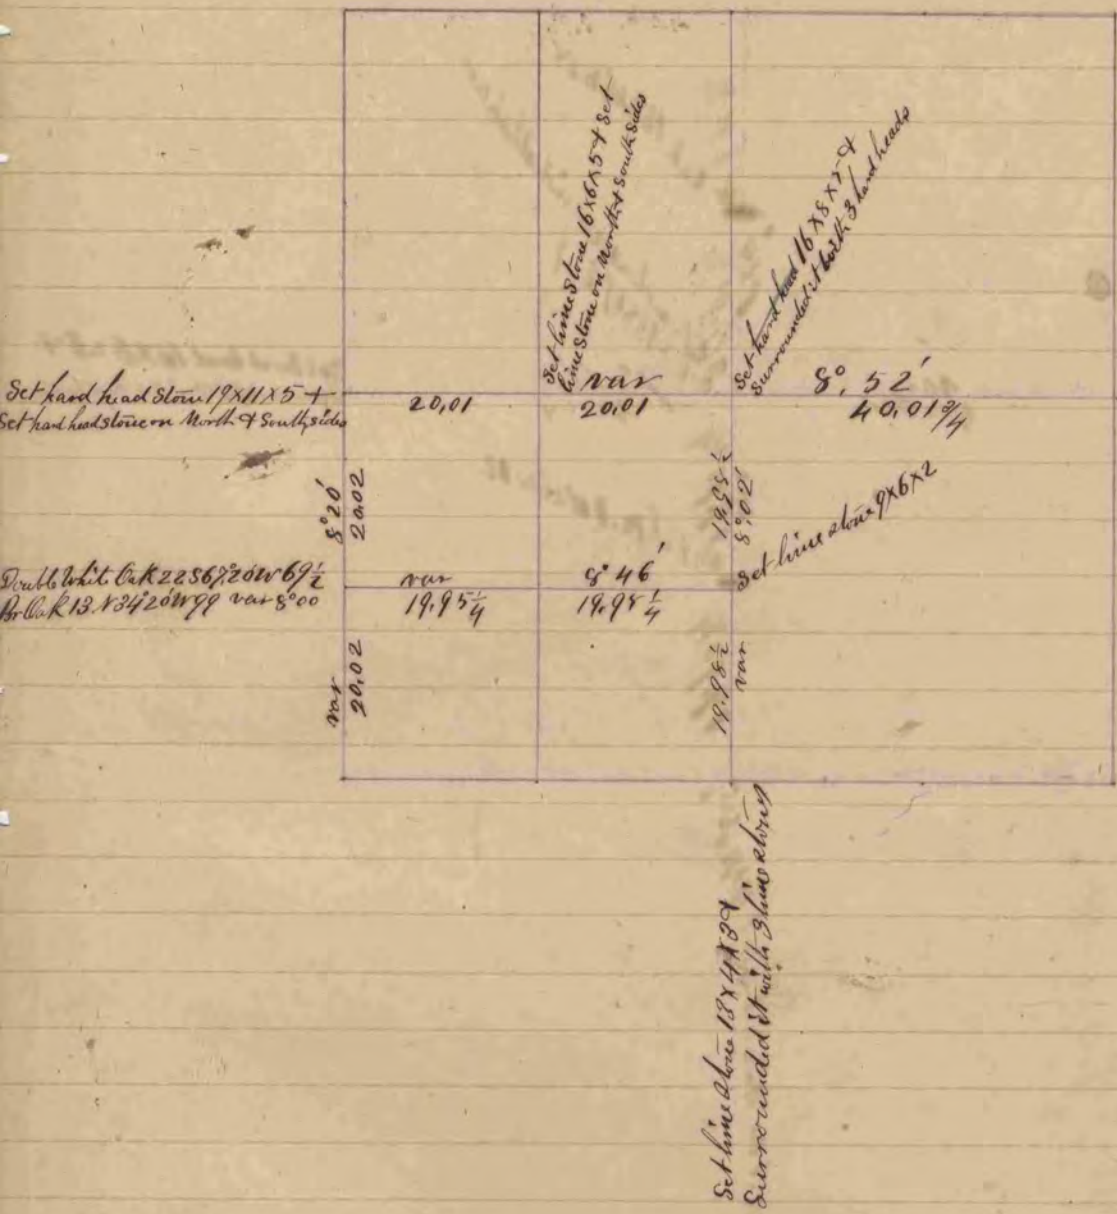 Set lime Stone 16x6x5 & Set
lime Stone on North & South sides
Set hard head 16x8x7 &
Surrounded it with 3 hard heads
Set hard head Stone 19x11x5 &
Set hard head stone on North & South sides
var
8°, 52′
20,01
20,01
40,01 3/4
8°20′
20.02
19,98 1/2
8°,02′
Set lime stone 9x6x2
Double White Oak 22 S67°20W 69 1/2
Br Oak 13. N34°20W 99 var 8°00
var
8°46′
19.95 1/4
19,98 1/4
var
20,02
19.98 1/2
var
Set lime stone 18x4x3 &
Surrounded it with 3 lime stones